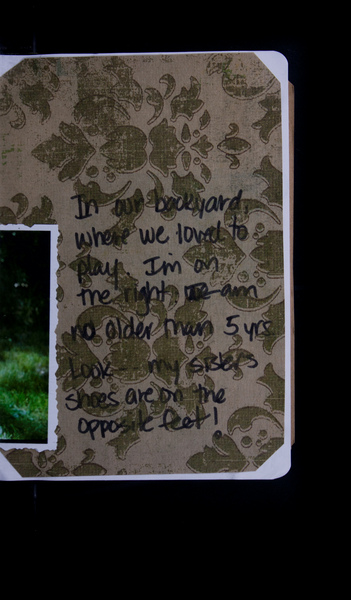 In our backyard,
where we loved to
play. I'm on
the right, am
no older than 5 yrs
Look -- my sisters
shoes are on the
opposite feet!